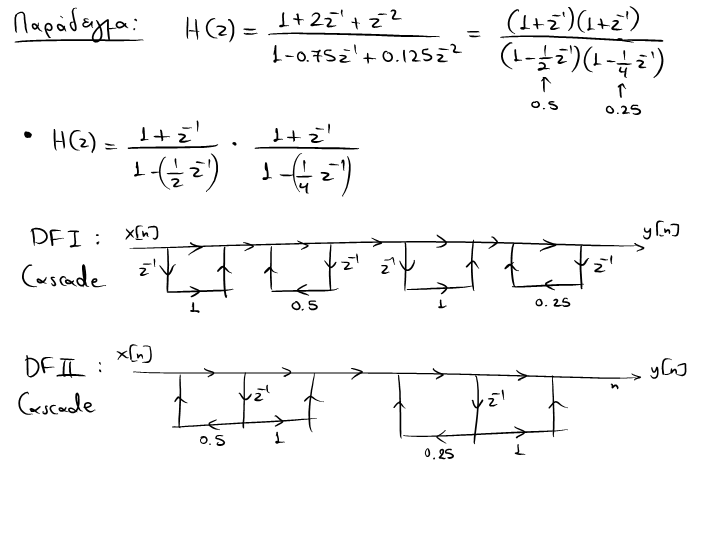 Παράδειγμα: H(z) = \frac{1+2z^{-1}+z^{-2}}{1-0.75z^{-1}+0.125z^{-2}} = \frac{(1+z^{-1})(1+z^{-1})}{(1-\frac{1}{2}z^{-1})(1-\frac{1}{4}z^{-1})}
↑ ↑
0.5 0.25
• H(z) = \frac{1+z^{-1}}{1-(\frac{1}{2}z^{-1})} · \frac{1+z^{-1}}{1-(\frac{1}{4}z^{-1})}
DF I : x[n] y[n]
Cascade z^{-1} z^{-1} z^{-1} z^{-1}
1 0.5 1 0.25
DF II : x[n] y[n]
n
Cascade z^{-1} z^{-1}
0.5 1 0.25 1